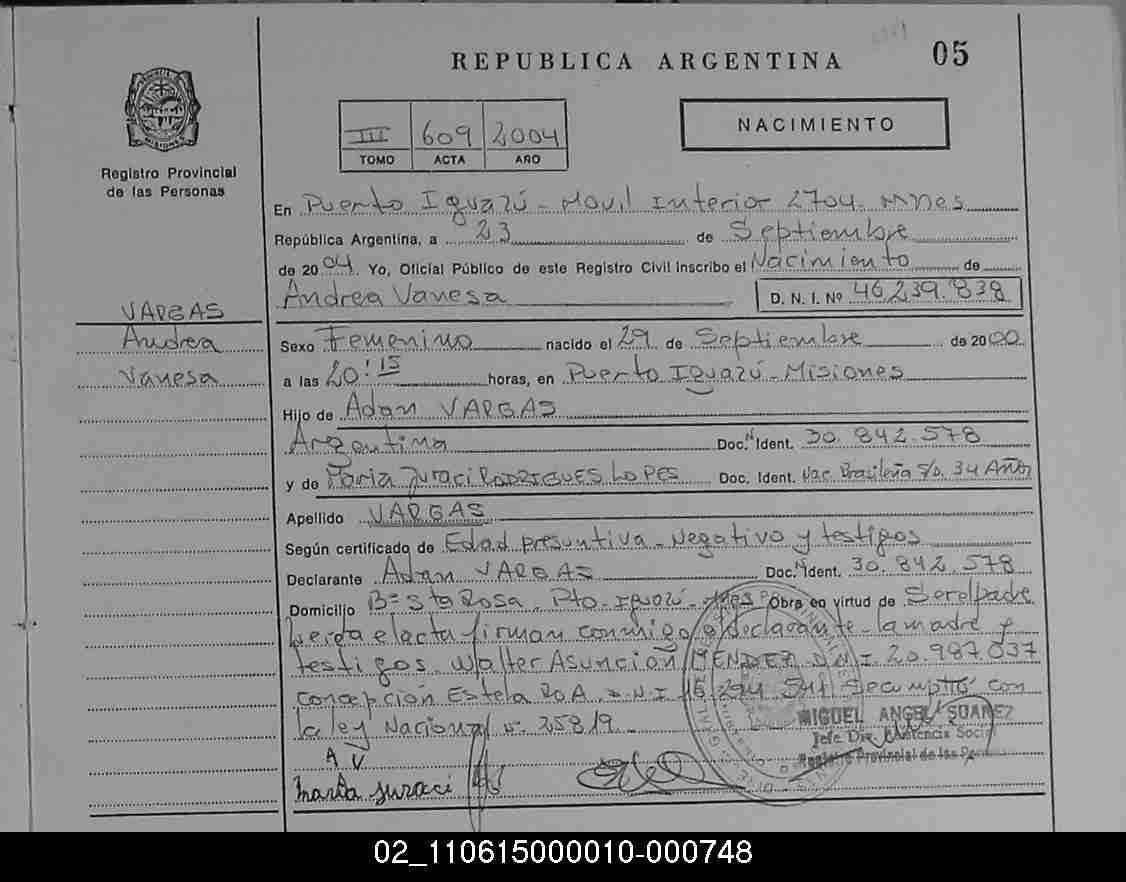 05
REPUBLICA ARGENTINA
III 609 2004
TOMO ACTA AÑO
NACIMIENTO
Registro Provincial
de las Personas
En Puerto Iguazú - Movil Interior 2704. Mnes
República Argentina, a 23 de Septiembre
de 2004. Yo, Oficial Público de este Registro Civil inscribo el Nacimiento de
Andrea Vanesa D. N. I. Nº 46.239.838
VARGAS
Andrea
Vanesa
Sexo Femenino nacido el 29 de Septiembre de 2000
a las 20:15 horas, en Puerto Iguazú - Misiones
Hijo de Adan VARGAS
Argentina Doc. Ident. 30.842.578
y de Maria Juraci RODRIGUES LOPES Doc. Ident. Nac. Brasileña S/D. 34 Años
Apellido VARGAS
Según certificado de Edad presuntiva - Negativo y testigos
Declarante Adan VARGAS Doc. Ident. 30.842.578
Domicilio Bº Sta Rosa. Pto. Iguazú - Mnes Obra en virtud de Ser el padre
Leida el acta firman conmigo el declarante - la madre y
testigos Walter Asunción MENDEZ D.N.I. 20.987.037
Concepción Estela ROA D.N.I. Se cumplió con
la ley Nacional nº 25819.
MIGUEL ANGEL SUAREZ
Jefe Dir. Asistencia Social
Registro Provincial de las Personas
A V
Maria Juraci
02_110615000010-000748